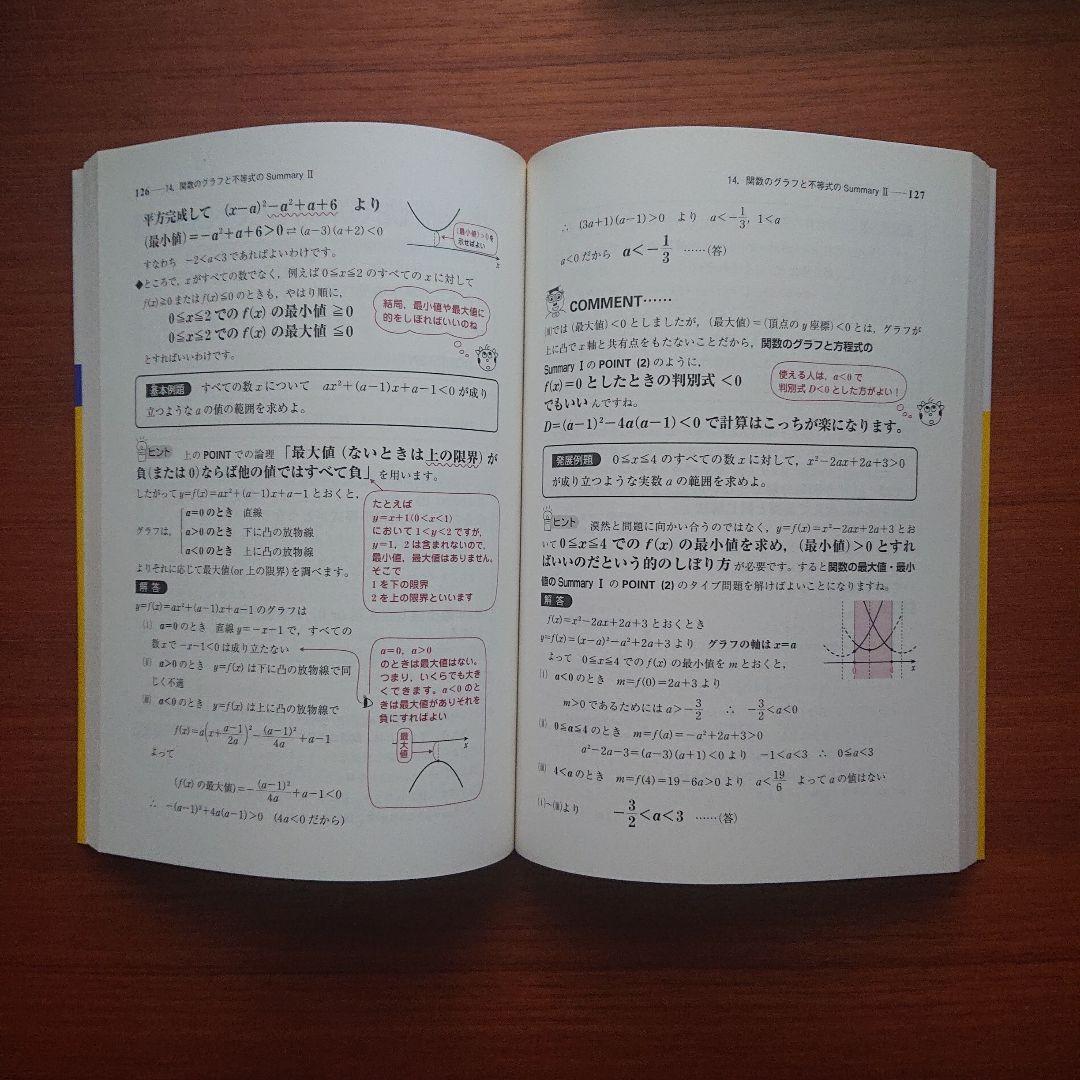 126──14. 関数のグラフと不等式の Summary Ⅱ
平方完成して (x−a)²−a²+a+6 より
(最小値)=−a²+a+6>0 ⇌ (a−3)(a+2)<0
すなわち −2<a<3であればよいわけです。
(最小値)>0を
示せばよい
x
◆ところで，xがすべての数でなく，例えば 0≦x≦2 のすべての x に対して
f(x)≧0 または f(x)≦0 のときも，やはり順に，
0≦x≦2 での f(x) の最小値 ≧0
0≦x≦2 での f(x) の最大値 ≦0
とすればいいわけです。
結局，最小値や最大値に
的をしぼればいいのね
基本例題 すべての数 x について ax²+(a−1)x+a−1<0 が成り
立つような a の値の範囲を求めよ。
ヒント 上の POINT での論理「最大値（ないときは上の限界）が
負（または 0）ならば他の値ではすべて負」を用います。
したがって y=f(x)=ax²+(a−1)x+a−1 とおくと，
グラフは，
a=0 のとき 直線
a>0 のとき 下に凸の放物線
a<0 のとき 上に凸の放物線
よりそれに応じて最大値(or 上の限界)を調べます。
たとえば
y=x+1(0<x<1)
において 1<y<2 ですが，
y=1，2 は含まれないので，
最小値，最大値はありません。
そこで
1 を下の限界
2 を上の限界といいます
解答
y=f(x)=ax²+(a−1)x+a−1 のグラフは
(ⅰ) a=0 のとき 直線 y=−x−1 で，すべての
数 x で −x−1<0 は成り立たない
(ⅱ) a>0 のとき y=f(x) は下に凸の放物線で同
じく不適
(ⅲ) a<0 のとき y=f(x) は上に凸の放物線で
f(x)=a(x+(a−1)/2a)²−(a−1)²/4a+a−1
よって
(f(x) の最大値)=−(a−1)²/4a+a−1<0
∴ −(a−1)²+4a(a−1)>0 (4a<0 だから)
a=0，a>0
のときは最大値はない。
つまり，いくらでも大き
くできます。a<0 のと
きは最大値がありそれを
負にすればよい
最大値
x
14. 関数のグラフと不等式の Summary Ⅱ──127
∴ (3a+1)(a−1)>0 より a<−1/3, 1<a
a<0 だから a<−1/3 ……(答)
COMMENT……
(ⅲ)では (最大値)<0 としましたが，(最大値)=(頂点の y 座標)<0 とは，グラフが
上に凸で x 軸と共有点をもたないことだから，関数のグラフと方程式の
Summary Ⅰ の POINT (2) のように，
f(x)=0 としたときの判別式 <0
でもいいんですね。
D=(a−1)²−4a(a−1)<0 で計算はこっちが楽になります。
使える人は，a<0 で
判別式 D<0 とした方がよい！
発展例題 0≦x≦4 のすべての数 x に対して，x²−2ax+2a+3>0
が成り立つような実数 a の範囲を求めよ。
ヒント 漠然と問題に向かい合うのではなく，y=f(x)=x²−2ax+2a+3 とお
いて 0≦x≦4 での f(x) の最小値を求め，(最小値)>0 とすれ
ばいいのだという的のしぼり方が必要です。すると関数の最大値・最小
値の Summary Ⅰ の POINT (2) のタイプ問題を解けばよいことになりますね。
解答
f(x)=x²−2ax+2a+3 とおくとき
y=f(x)=(x−a)²−a²+2a+3 より グラフの軸は x=a
よって 0≦x≦4 での f(x) の最小値を m とおくと，
x
(ⅰ) a<0 のとき m=f(0)=2a+3 より
m>0 であるためには a>−3/2 ∴ −3/2<a<0
(ⅱ) 0≦a≦4 のとき m=f(a)=−a²+2a+3>0
a²−2a−3=(a−3)(a+1)<0 より −1<a<3 ∴ 0≦a<3
(ⅲ) 4<a のとき m=f(4)=19−6a>0 より a<19/6 よって a の値はない
(ⅰ)〜(ⅲ)より −3/2<a<3 ……(答)